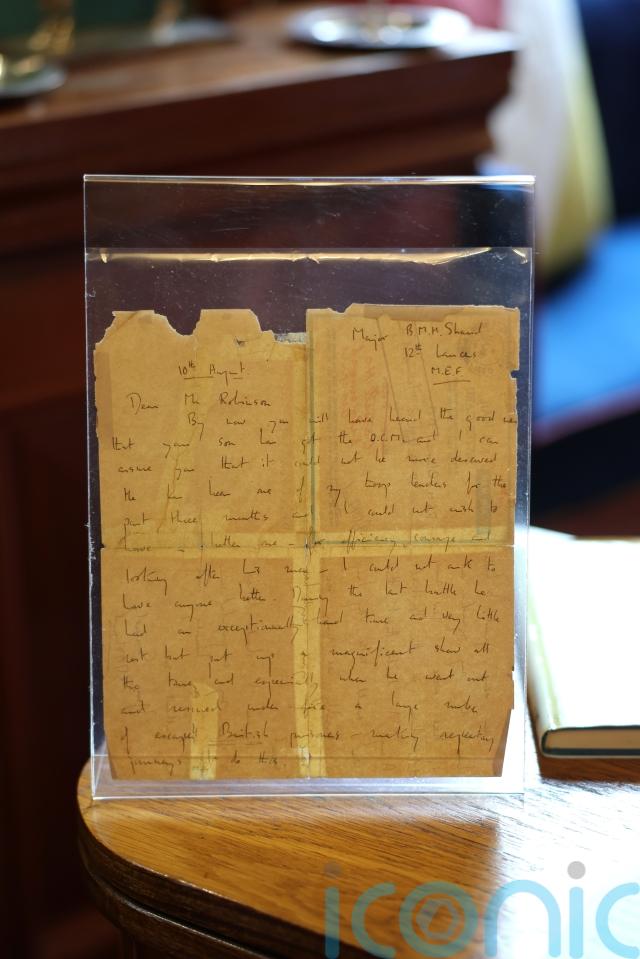 Major B.M.H. Shand
12th Lancers
M.E.F
10th August.
Dear Mr Robinson
By now you will have heard the good news
that your son has got the D.C.M. and I can
assure you that it could not be more deserved
He has been one of my troop leaders for the
past three months and I could not wish to
have a better one - for efficiency, courage and
looking after his men - I could not ask to
have anyone better. During the last battle he
had an exceptionally hard time and very little
rest but put up a magnificent show all
the time and especially when he went out
and rescued under fire a large number
of escaped British prisoners - making repeated
journeys to do this.
iconic